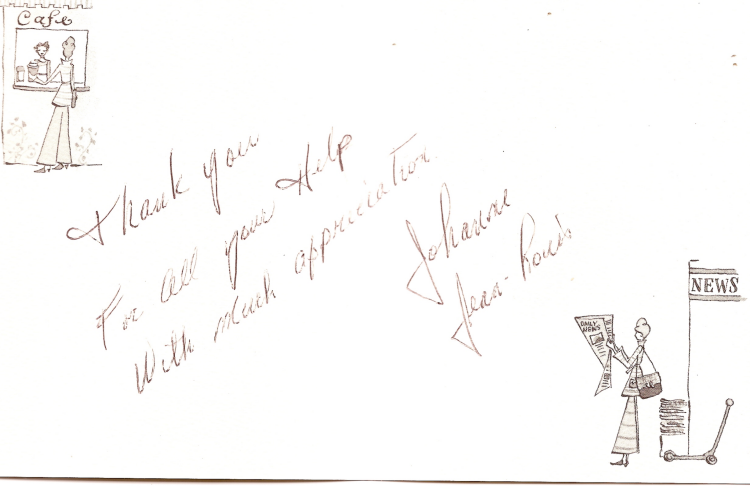 Cafe
Thank you
For all your Help
With much appriciation
Johanne
Jean-Louis
NEWS
DAILY
NEWS